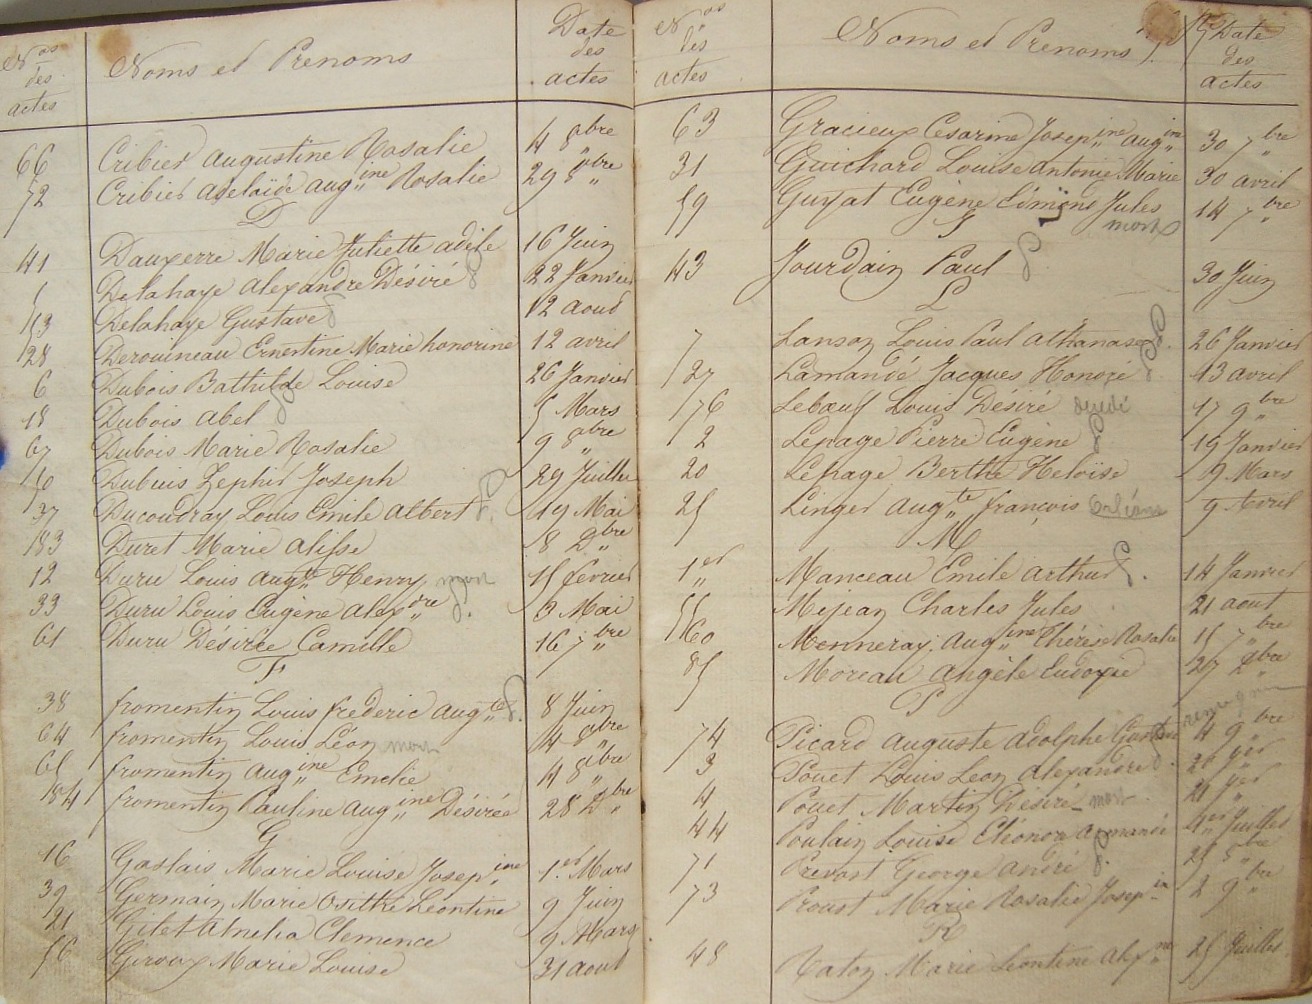 Nos des actes
Noms et Prenoms
Date des actes
66 Cribier augustine Rosalie 4 8bre
72 Cribier adelaïde aug,,ine Rosalie 29 8bre
D
41 Dauxerre Marie Juliette adèle 16 Juin
Delahaye alexandre Désiré 22 Janvier
53 Delahaye Gustave 12 aout
28 Derouineau Ernestine Marie honorine 12 avril
6 Dubois Bathilde Louise 26 Janvier
18 Dubois abel 5 Mars
67 Dubois Marie Rosalie 9 8bre
Dubuis Zephir Joseph 29 Juillet
37 Ducoudray Louis Emile albert 19 Mai
83 Duret Marie alisse 8 Dbre
12 Duru Louis augte Henry mort 15 fevrier
33 Duru Louis Eugène alexdre 3 Mai
61 Duru Désirée Camille 16 7bre
F
38 fromentin Louis frederic augte 8 Juin
64 fromentin Louis Léon mort 4 8bre
65 fromentin aug,,ine Emelie 4 8bre
84 fromentin Pauline aug,,ine Désirée 28 Dbre
G
16 Gaslais Marie Louise Josep,,ine 1er Mars
39 Germain Marie Osithe Leontine 9 Juin
21 Gilet Amelia Clemence 9 Mars
56 Giroux Marie Louise 31 aout
Nos des actes
Noms et Prenoms
Date des actes
63 Gracieux Cesarine Josep,,ine aug,,ine 30 7bre
31 Guichard Louise antonie Marie 30 avril
59 Guyat Eugène Edmond Jules 14 7bre
J mort
43 Jourdain Paul 30 Juin
L
7 Lanson Louis Paul athanase 26 Janvier
27 Lamandé Jacques Honoré 13 avril
76 Lebœuf Louis Désiré 17 9bre
2 Lepage Pierre Eugène 19 Janvier
20 Lepage Berthe Heloïse 9 Mars
25 Linger augte françois Orléans 9 Avril
M
1er Manceau Emile arthur 14 Janvier
55 Mejean Charles Jules 21 aout
60 Menneray aug,,ine Thérèse Rosalie 15 7bre
85 Moreau angèle Eudoxie 27 Dbre
P
74 Picard auguste adolphe Gustave 4 9bre
3 Pouet Louis Leon alexandre
4 Pouet Martin Désiré mort 21
44 Poulain Louise Eléonor armande 4 Juillet
71 Prevost George andré 29 8bre
73 Proust Marie Rosalie Josep,,in 2 9bre
R
48 Raton Marie Leontine 25 Juillet